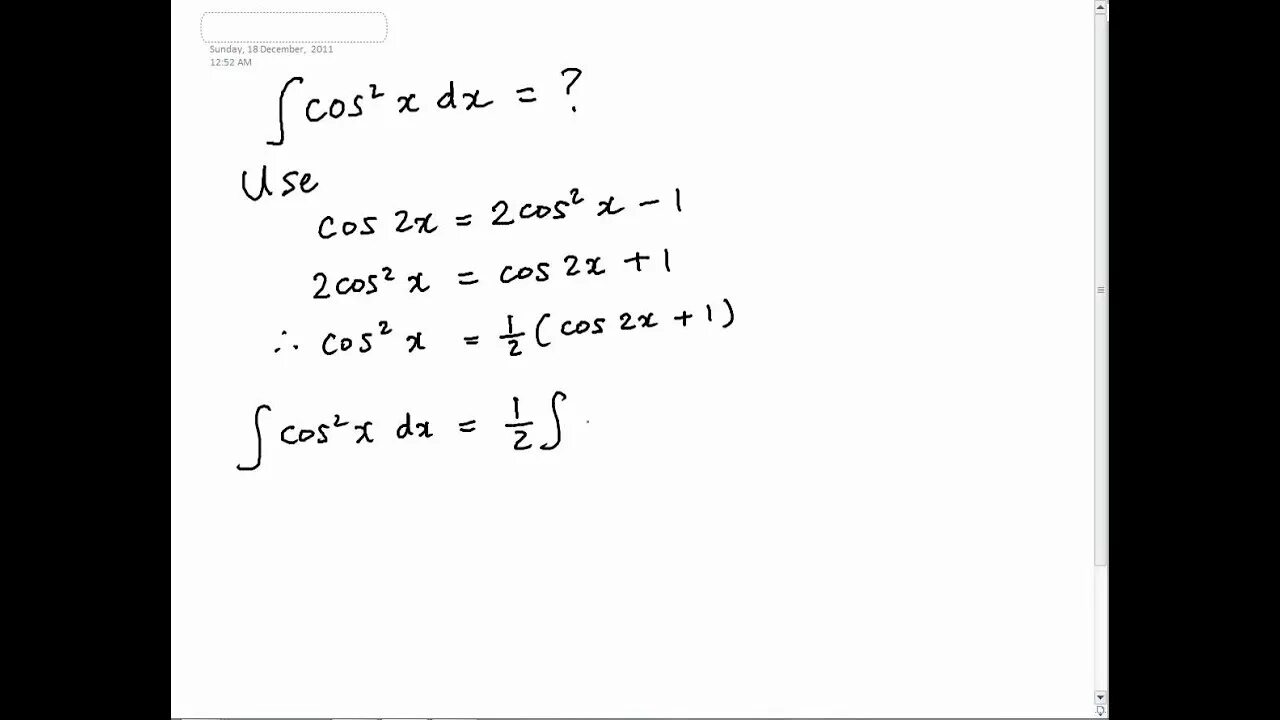 Sunday, 18 December, 2011
12:52 AM
∫ cos² x dx = ?
Use
cos 2x = 2cos² x - 1
2cos² x = cos 2x + 1
∴ cos² x = 1/2 (cos 2x + 1)
∫ cos² x dx = 1/2 ∫